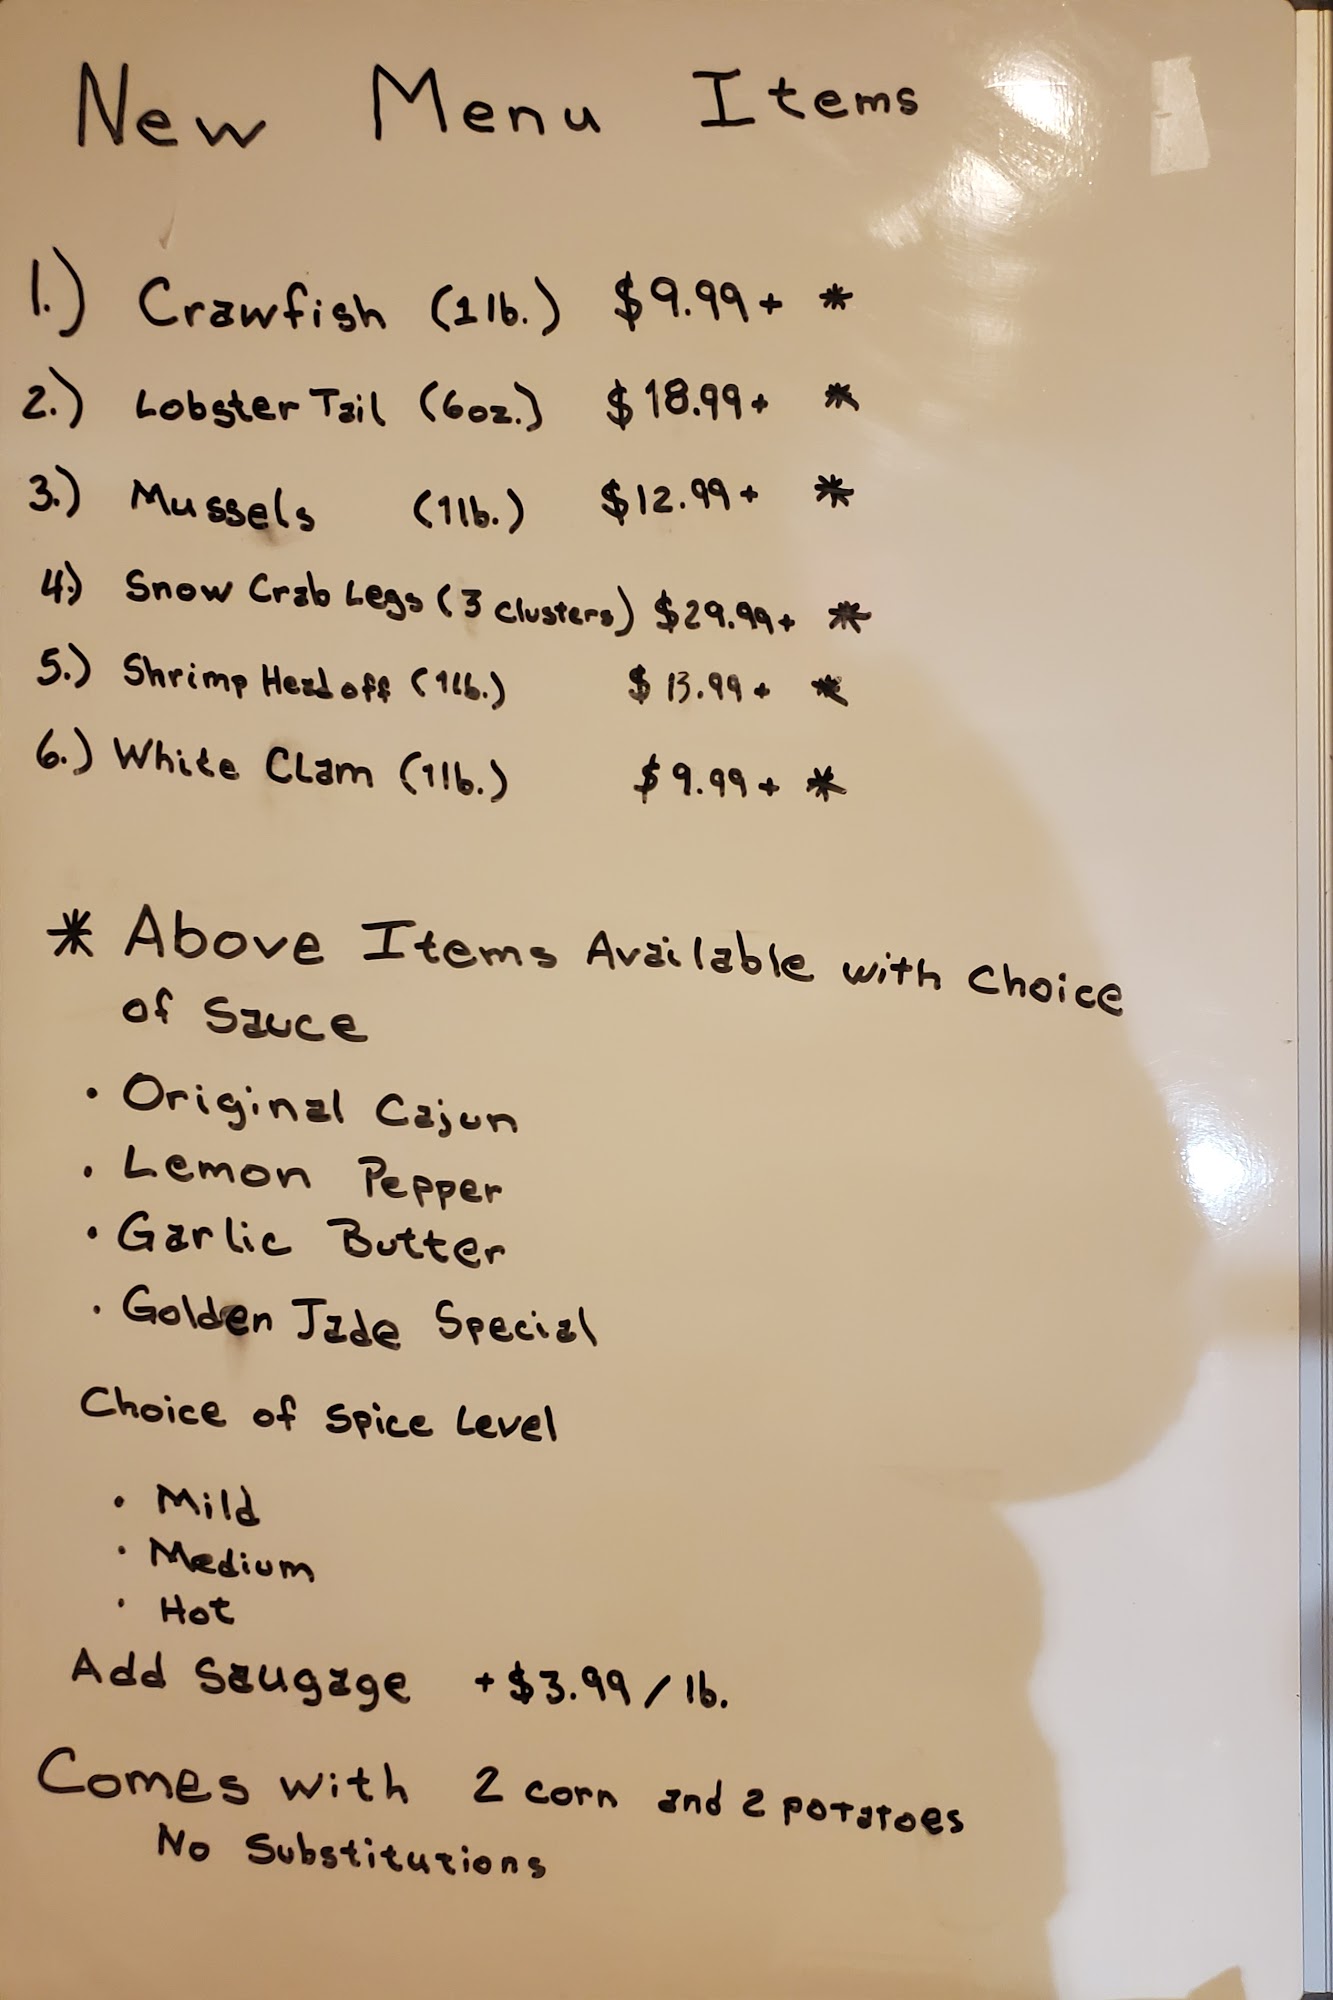 New Menu Items
1.) Crawfish (1lb.) $9.99+ *
2.) Lobster Tail (6oz.) $18.99+ *
3.) Mussels (1lb.) $12.99+ *
4.) Snow Crab Legs (3 clusters) $29.99+ *
5.) Shrimp Head off (1lb.) $13.99+ *
6.) White Clam (1lb.) $9.99+ *
* Above Items Available with Choice
of Sauce
• Original Cajun
• Lemon Pepper
• Garlic Butter
• Golden Jade Special
Choice of Spice Level
• Mild
• Medium
• Hot
Add Sausage +$3.99/lb.
Comes with 2 corn and 2 potatoes
No Substitutions